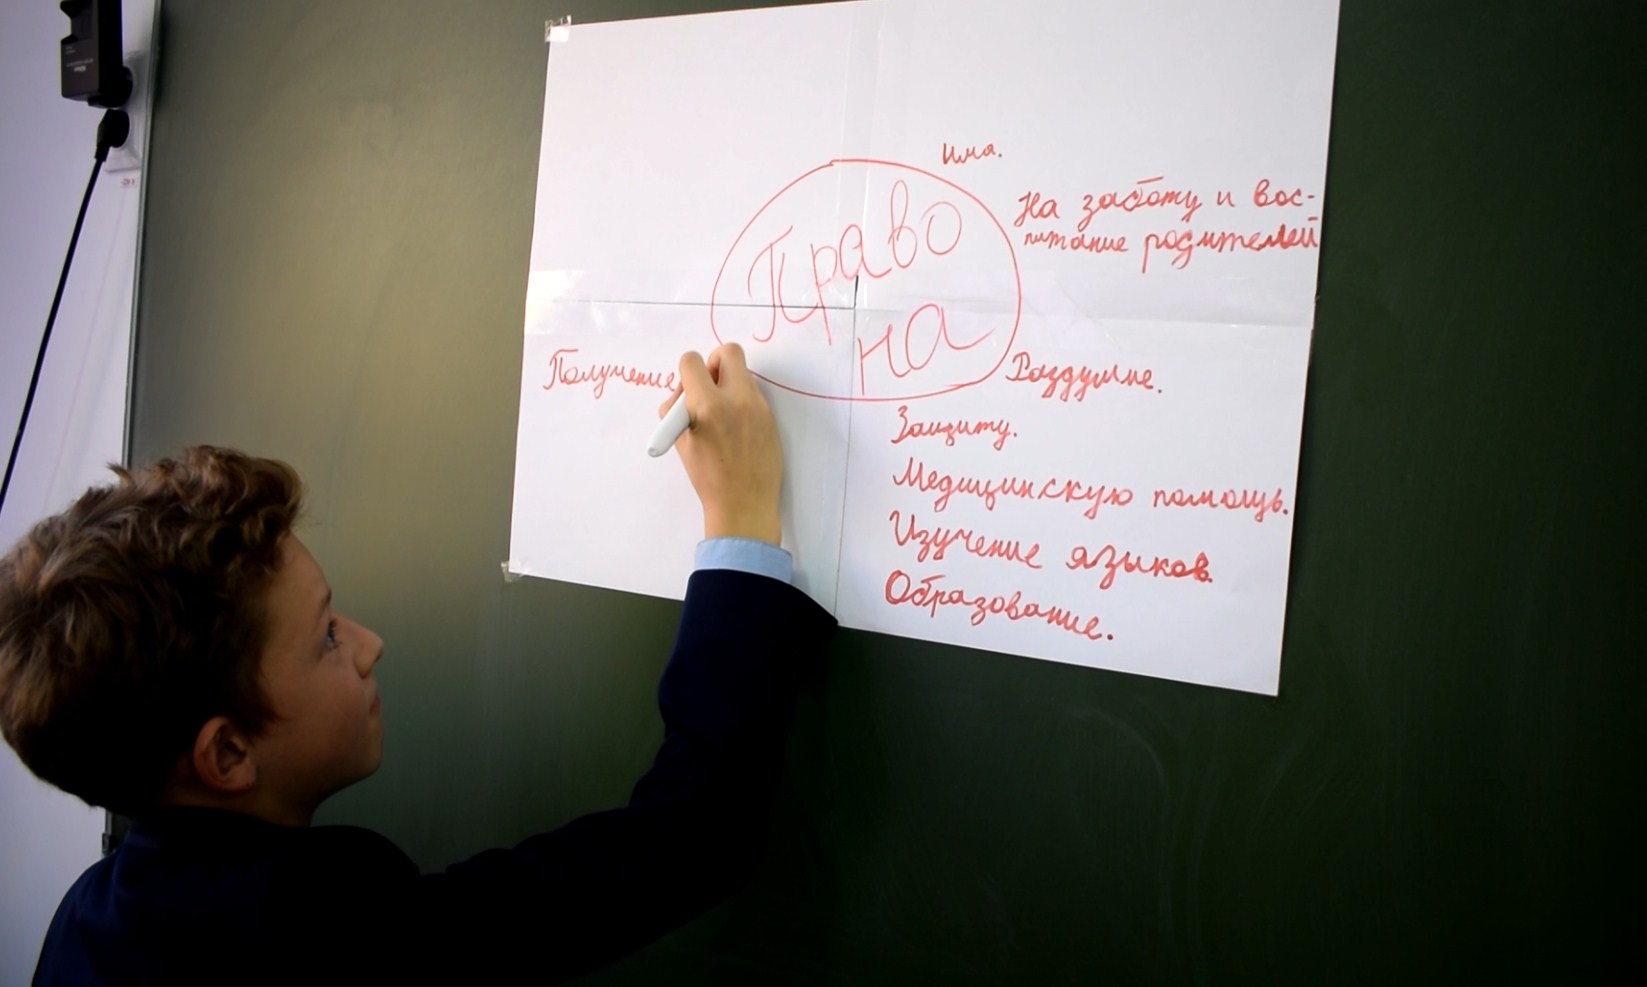 Имя.
На заботу и вос-
питание родителей
Право
на
Получение
Раздумие.
Защиту.
Медицинскую помощь.
Изучение языков.
Образование.